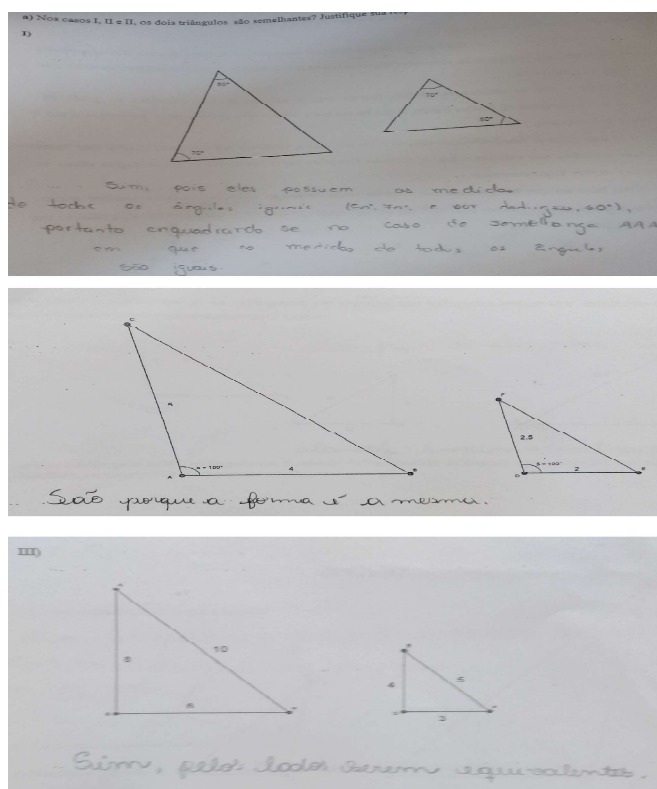 a) Nos casos I, II e II, os dois triângulos são semelhantes? Justifique sua
I)
70°
70°
Sim, pois eles possuem as medidas
de todos os ângulos iguais
portanto enquadrando se no caso de semelhança AAA
em que as medidas de todos os ângulos
são iguais.
C
4
A
B
F
2.5
2
D
E
São porque a forma é a mesma.
III)
8
10
6
4
5
3
Sim, pelos lados serem equivalentes.